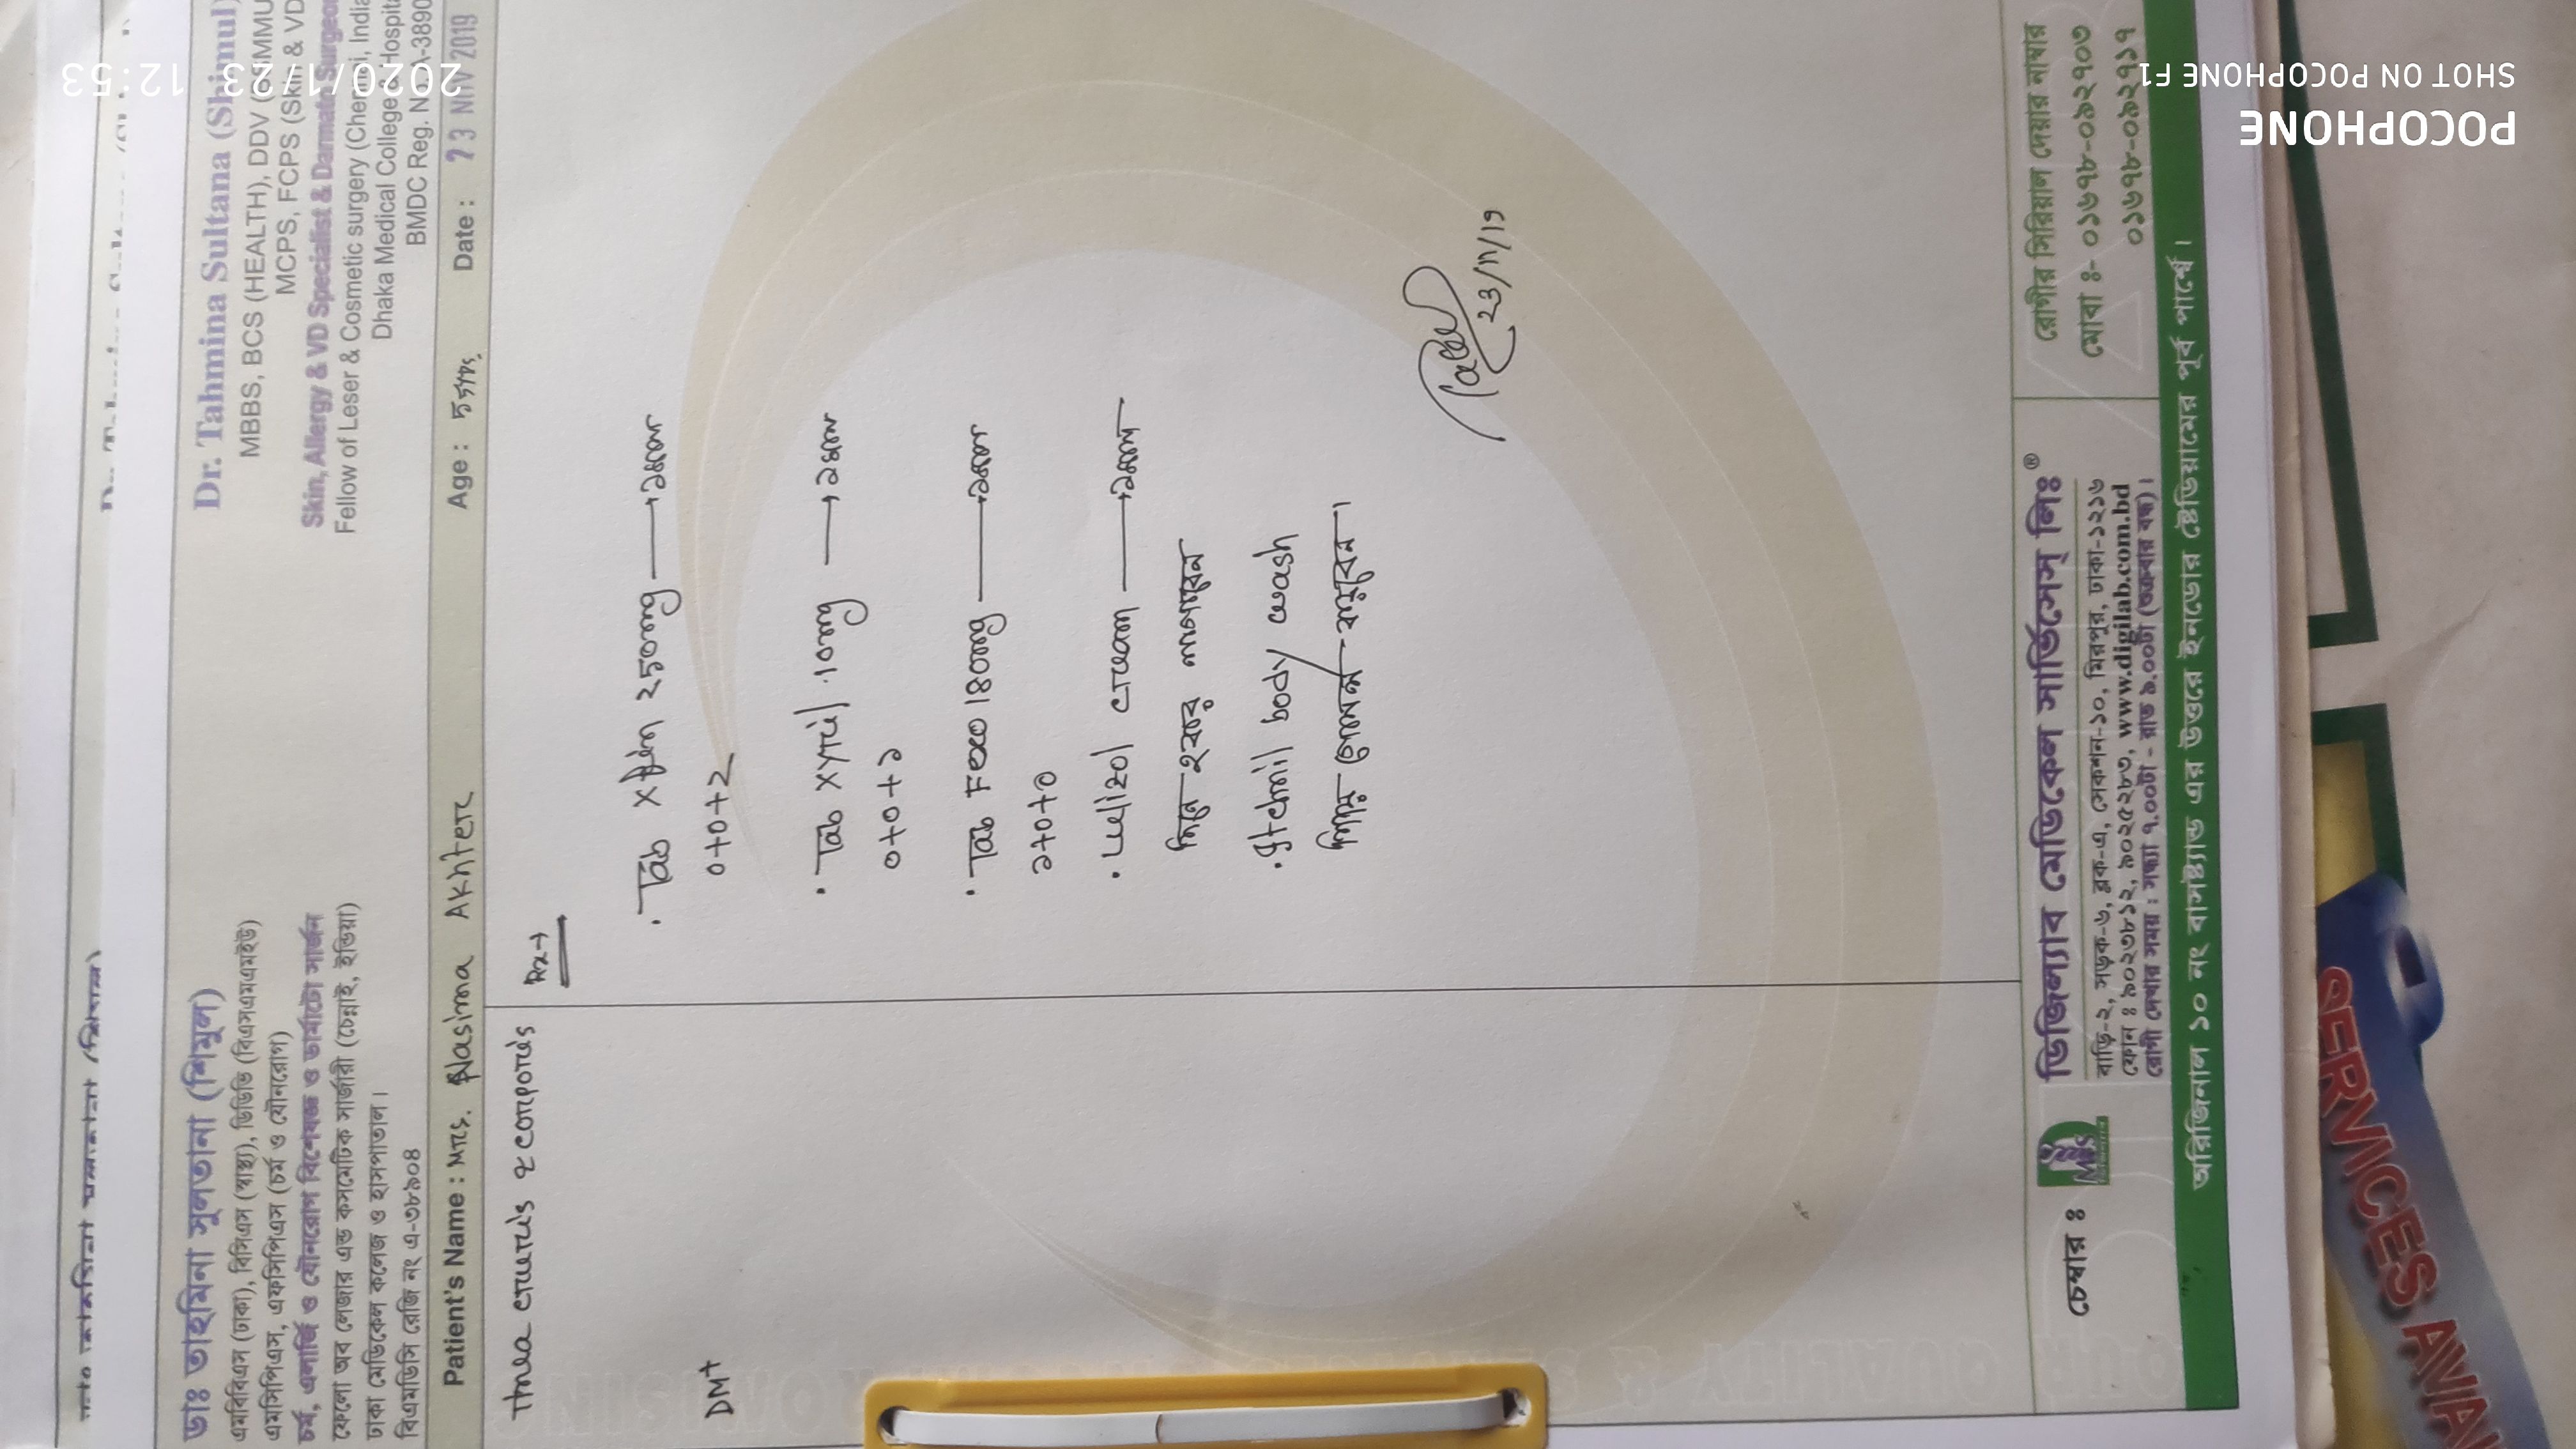 ডাঃ তাহমিনা সুলতানা (শিমুল)
এমবিবিএস (ঢাকা), বিসিএস (স্বাস্থ্য), ডিডিভি (বিএসএমএমইউ)
এমসিপিএস, এফসিপিএস (চর্ম ও যৌনরোগ)
চর্ম, এলার্জি ও যৌনরোগ বিশেষজ্ঞ ও ডার্মাটো সার্জন
ফেলো অব লেজার এন্ড কসমেটিক সার্জারী (চেন্নাই, ইন্ডিয়া)
ঢাকা মেডিকেল কলেজ ও হাসপাতাল।
বিএমডিসি রেজি নং এ-৩৮৯০৪
Dr. Tahmina Sultana (Shimul)
MBBS, BCS (HEALTH), DDV
MCPS, FCPS (Skin & VD
Skin, Allergy & VD Specialist & Dermato Surgeon
Fellow of Leser & Cosmetic surgery (Chennai, India
Dhaka Medical College & Hospital
BMDC Reg. No. A-3890
Patient's Name : Mrs. Nasima Akhter Age : 55yrs Date : 23 NOV 2019
Tinea cruris & corporis
DM+
Rx→
· Tab Xfin 250mg → ১মাস
0+0+2
· Tab Xyril 10mg → ১মাস
0+0+১
· Tab Fexo 180mg → ১মাস
১+0+0
· Lulizol cream → ১মাস
দিনে ২বার লাগাবেন
· Itchnil body wash
দিয়ে গোসল করবেন।
23/11/19
চেম্বার ঃ
ডিজিল্যাব মেডিকেল সার্ভিসেস্ লিঃ®
বাড়ি-২, সড়ক-৬, ব্লক-এ, সেকশন-১০, মিরপুর, ঢাকা-১২১৬
ফোন ঃ ৯০২৩৮১২, ৯০২৫২৮৩, www.digilab.com.bd
রোগী দেখার সময় : সন্ধ্যা ৭.০০টা - রাত ৯.০০টা (শুক্রবার বন্ধ)।
রোগীর সিরিয়াল দেয়ার নাম্বার
মোবা ঃ- ০১৬৭৮-০৯২৭০৩
০১৬৭৮-০৯২৭১৭
অরিজিনাল ১০ নং বাসস্ট্যান্ড এর উত্তরে ইনডোর ষ্টেডিয়ামের পূর্ব পার্শ্বে।
SERVICES AVAI
POCOPHONE
SHOT ON POCOPHONE F1
2020/1/23 12:53